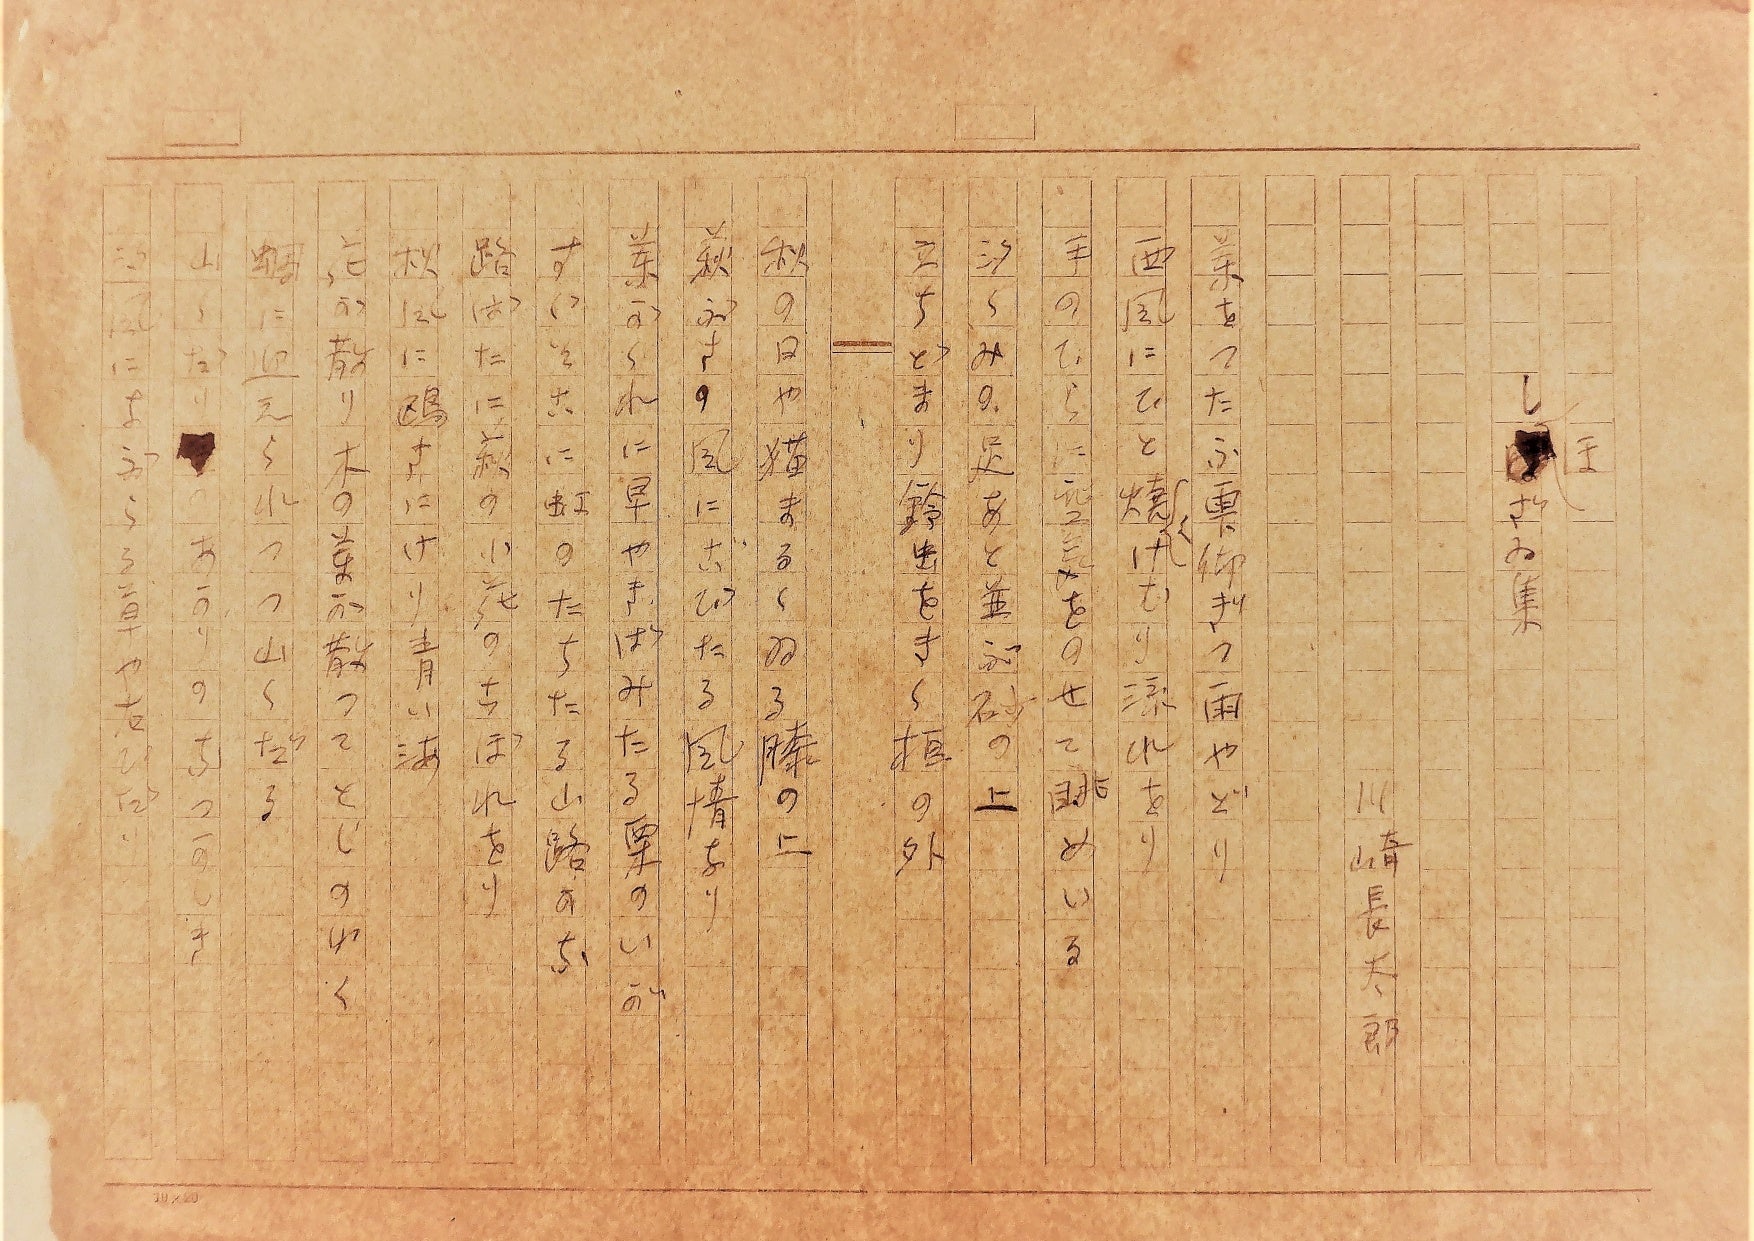 しほざゐ集
川崎長太郎
葉をつたふ雫仰ぎつ雨やどり
西風にひと焼くけむり流れをり
手のひらに空気をのせて眺めいる
汐くみの足あと並ぶ砂の上
立ちどまり鈴虫をきく垣の外
秋の日や猫まるくゐる膝の上
萩ぶきの風にさびたる風情なり
葉がくれに早やきばみたる栗のいが
すぐそこに虹のたちたる山路かな
路ばたに萩の小花のちぼれをり
秋風に鴎まにけり青い海
花が散り木の葉が散つてとしのゆく
蝿に迎えられつつ山くだる
山くだり あかりのちつかしき
汐風になぶらる草や
10×20